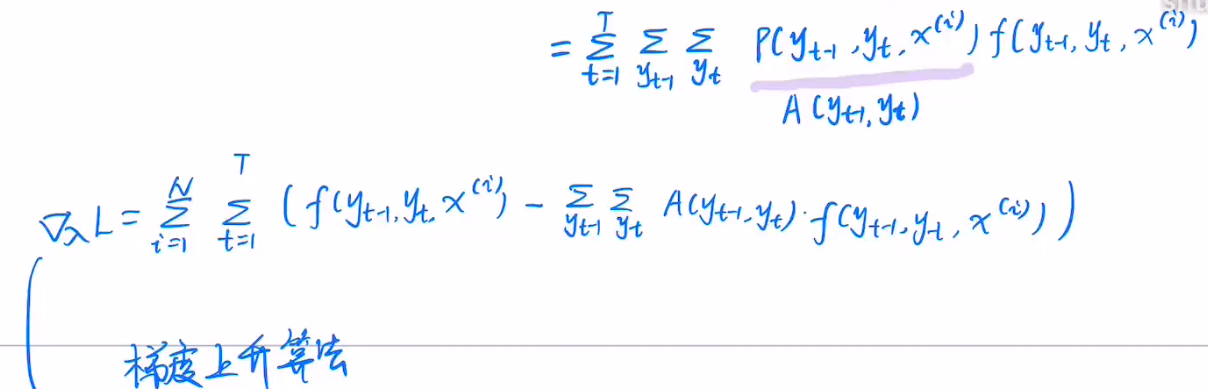 = ∑_{t=1}^{T} ∑_{y_{t-1}} ∑_{y_t} P(y_{t-1}, y_t, x^{(i)}) f(y_{t-1}, y_t, x^{(i)})
A(y_{t-1}, y_t)
∇_λ L = ∑_{i=1}^{N} ∑_{t=1}^{T} ( f(y_{t-1}, y_t, x^{(i)}) - ∑_{y_{t-1}} ∑_{y_t} A(y_{t-1}, y_t) · f(y_{t-1}, y_t, x^{(i)}) )
梯度上升算法